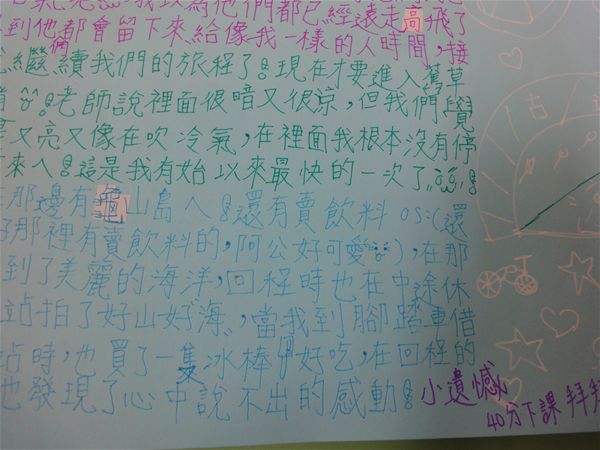 我以為他們都已經遠走高飛了
到他都會留下來給像我一樣的人時間,接
們
繼續我們的旅程了!現在才要進入舊草
老師說裡面很暗又很涼,但我們覺
又亮又像在吹冷氣,在裡面我根本沒有停
來人!這是我有始以來最快的一次了!!
那邊有龜山島人!還有賣飲料 OS:(還
好那裡有賣飲料的,阿公好可愛),在那
到了美麗的海洋,回程時也在中途休
站拍了好山好海,當我到腳踏車借
站時,也買了一隻冰棒好吃,在回程的
也發現了心中說不出的感動!小遺憾
40分下課 拜
古